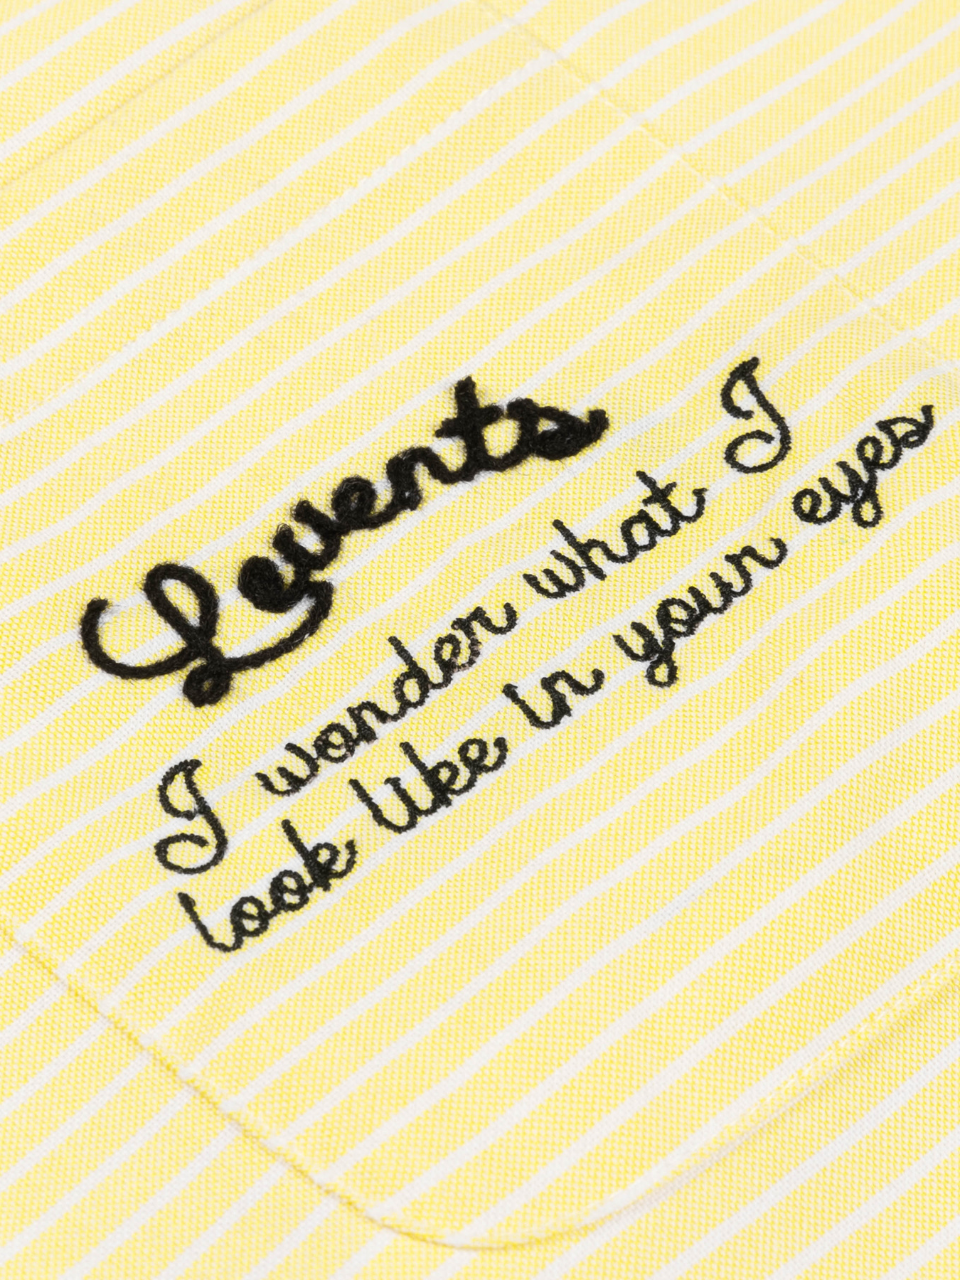 Levents
I wonder what I
look like in your eyes